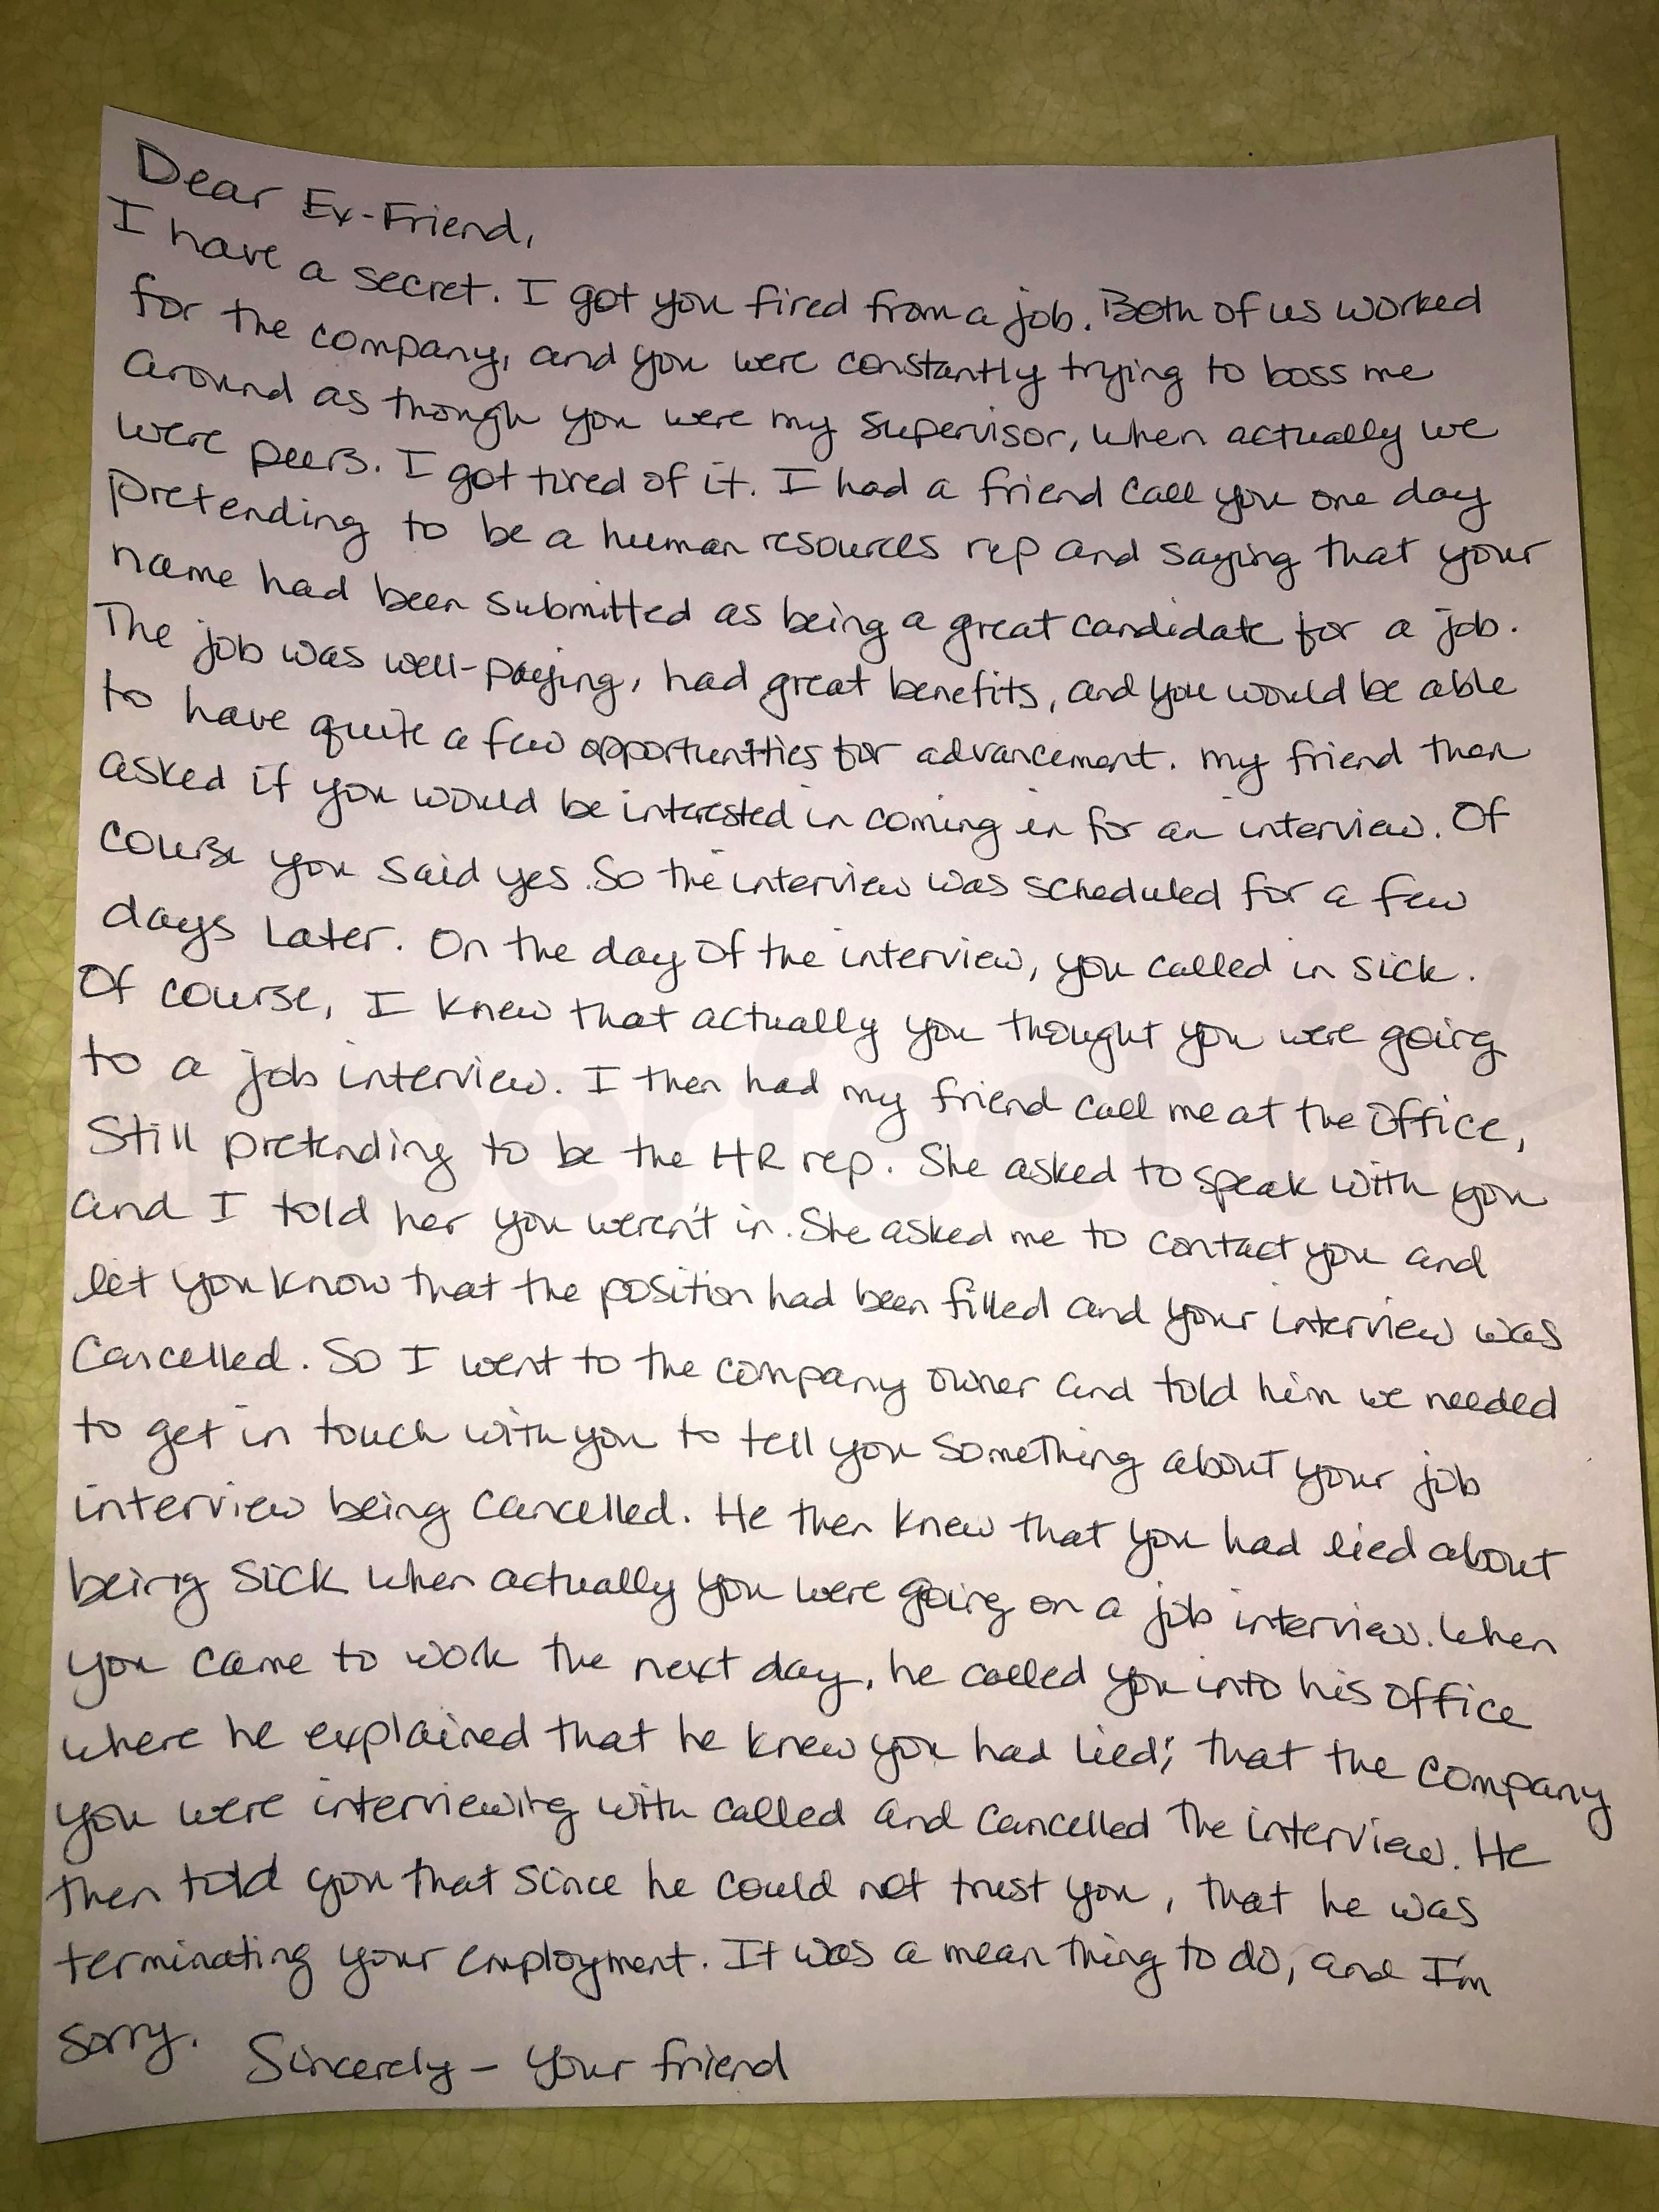 Dear Ex-Friend,
I have a secret. I got you fired from a job. Both of us worked
for the company, and you were constantly trying to boss me
around as though you were my supervisor, when actually we
were peers. I got tired of it. I had a friend call you one day
pretending to be a human resources rep and saying that your
name had been submitted as being a great candidate for a job.
The job was well-paying, had great benefits, and you would be able
to have quite a few opportunities for advancement. My friend then
asked if you would be interested in coming in for an interview. Of
course you said yes. So the interview was scheduled for a few
days later. On the day of the interview, you called in sick.
Of course, I knew that actually you thought you were going
to a job interview. I then had my friend call me at the office,
still pretending to be the HR rep. She asked to speak with you
and I told her you weren't in. She asked me to contact you and
let you know that the position had been filled and your interview was
cancelled. So I went to the company owner and told him we needed
to get in touch with you to tell you something about your job
interview being cancelled. He then knew that you had lied about
being sick when actually you were going on a job interview. When
you came to work the next day, he called you into his office
where he explained that he knew you had lied; that the company
you were interviewing with called and cancelled the interview. He
then told you that since he could not trust you, that he was
terminating your employment. It was a mean thing to do, and I'm
sorry. Sincerely - Your friend